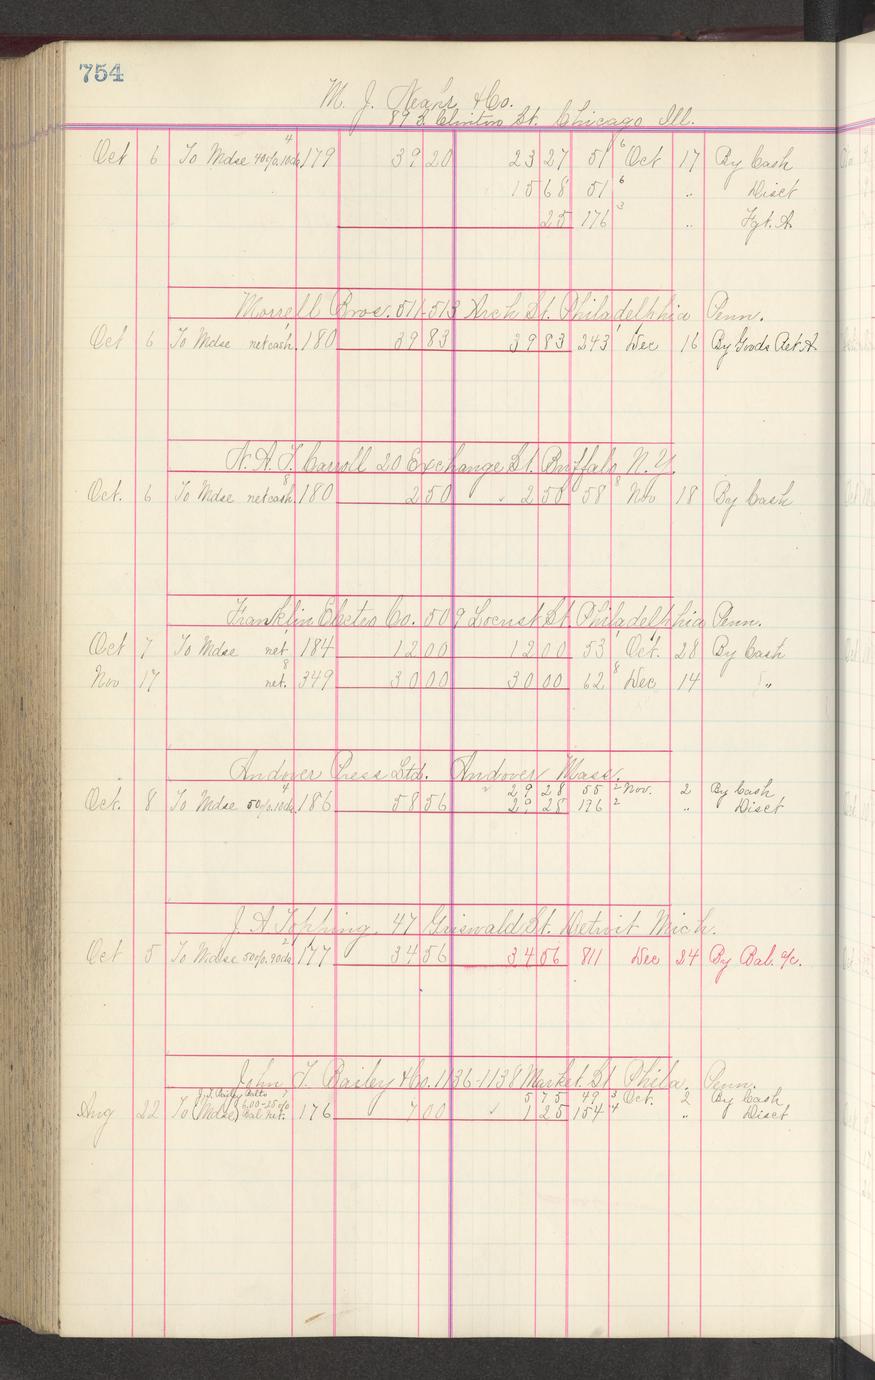 754
M. J. & Co.
89 S. Clinton St. Chicago Ill.
Oct 6 To Mdse 40% 10da 4 179 39 20 23 27 51 6 Oct 17 By Cash
15 68 51 6 " Disct
25 176 3 " Fgt. A
Morrell Bros. 511-513 Arch St. Philadelphia Penn.
Oct 6 To Mdse net cash 180 39 83 39 83 243 1 Dec 16 By Goods Ret. A
20 Exchange St. Buffalo N.Y.
Oct. 6 To Mdse net cash 8 180 2 50 2 50 58 8 Nov 18 By Cash
Franklin Electro Co. 509 Locust St. Philadelphia Penn.
Oct 7 To Mdse net 1 184 12 00 12 00 53 1 Oct. 28 By Cash
Nov 17 net. 8 349 30 00 30 00 62 8 Dec 14 "
Andover Press Ltd. Andover Mass.
Oct. 8 To Mdse 50% 10da 4 186 58 56 29 28 55 2 Nov. 2 By Cash
29 28 176 2 " Disct
J. A. Topping. 47 Griswald St. Detroit Mich.
Oct 5 To Mdse 50% 90da 2 177 34 56 34 56 811 Dec 24 By Bal. a/c.
John T. Bailey & Co. 1136-1138 Market St Phila. Penn.
Aug 22 To Mdse 6.00-25% bal net. 176 7 00 5 75 49 3 Oct. 2 By Cash
1 25 154 4 " Disct